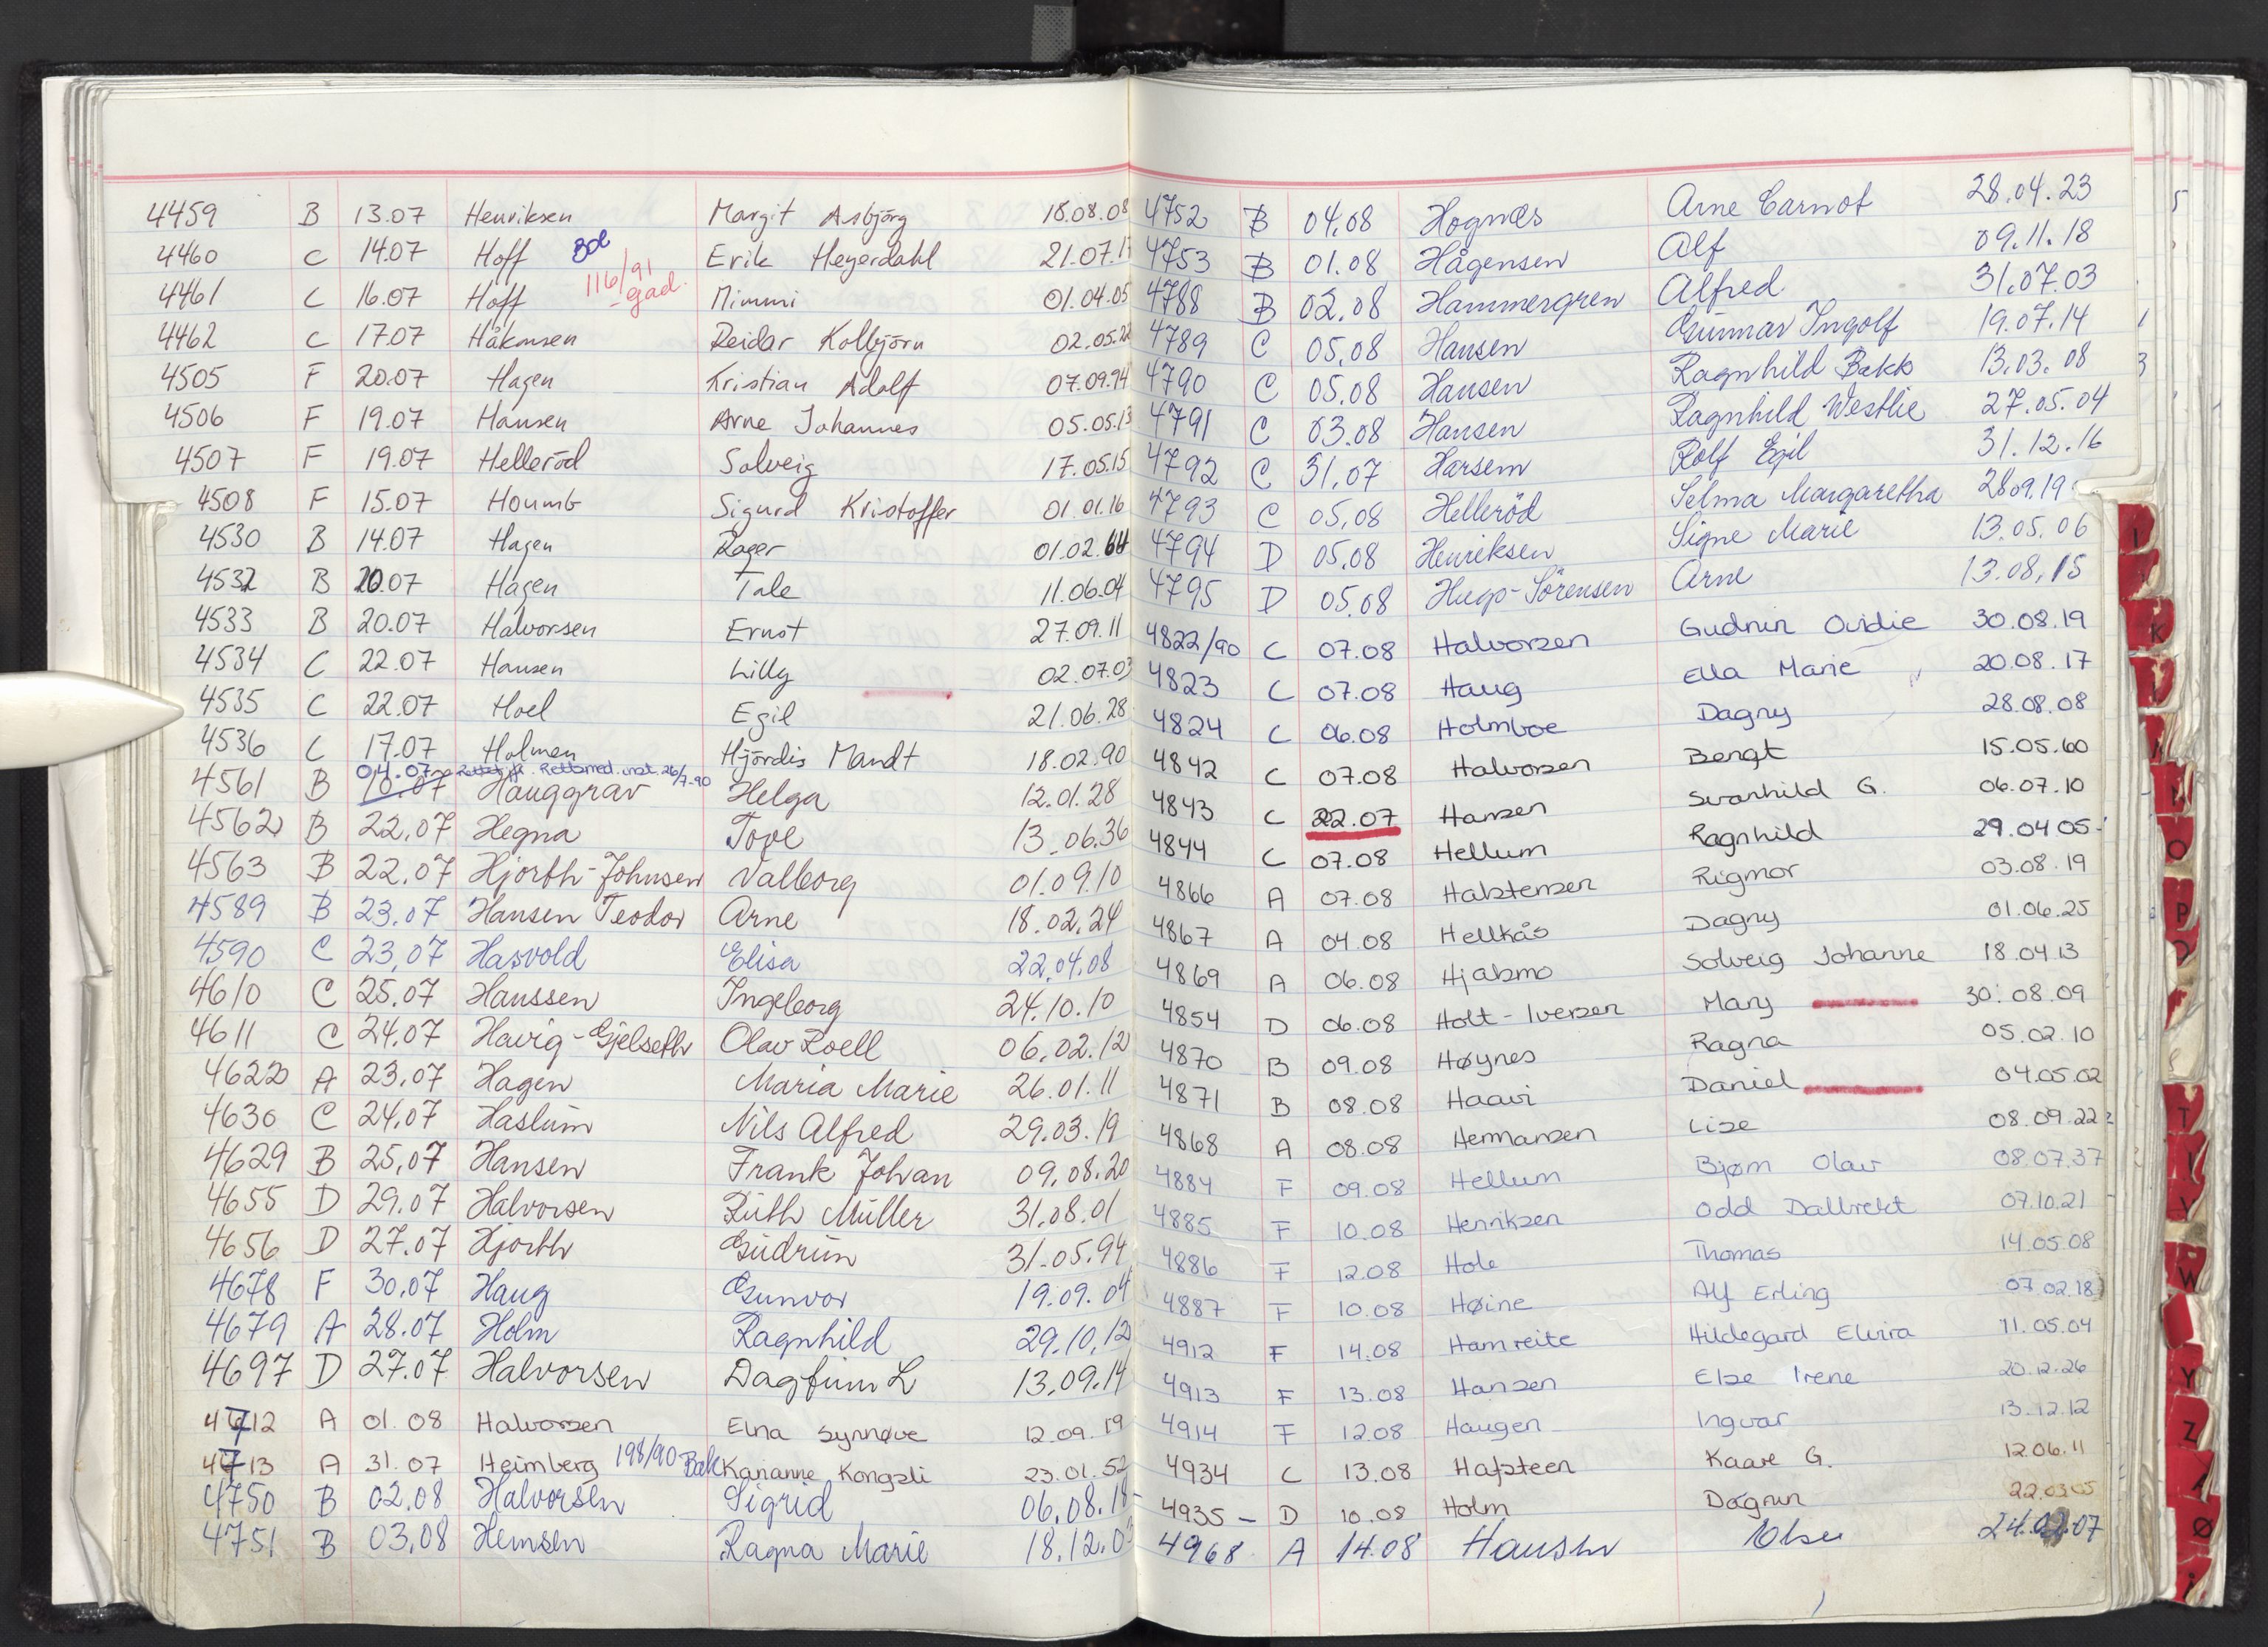 4459 B 13.07 Henriksen Margit Asbjörg 18.08.08
4460 C 14.07 Hoff Bol Erik Heyerdahl 21.07.1
116/91 gad.
4461 C 16.07 Hoff Mimmi 01.04.05
4462 C 17.07 Håkonsen Reidar Kolbjörn 02.05.
4505 F 20.07 Hagen Kristian Adolf 07.09.94
4506 F 19.07 Hansen Arne Johannes 05.05.13
4507 F 19.07 Helleröd Solveig 17.05.15
4508 F 15.07 Houmb Sigurd Kristoffer 01.01.16
4530 B 14.07 Hagen Roger 01.02.64
4532 B 20.07 Hagen Tale 11.06.04
4533 B 20.07 Halvorsen Ernst 27.09.11
4534 C 22.07 Hansen Lilly 02.07.03
4535 C 22.07 Hoel Egil 21.06.28
4536 C 17.07 Holmen Hjördis Mandt 18.02.90
04.07 Rettet jfr. Rettsmed.inst. 26/7-90
4561 B 10.07 Hauggrav Helga 12.01.28
4562 B 22.07 Hegna Tove 13.06.36
4563 B 22.07 Hjorth-Johnsen Valborg 01.09.10
4589 B 23.07 Hansen Teodor Arne 18.02.24
4590 C 23.07 Hasvold Elisa 22.04.08
4610 C 25.07 Hanssen Ingeborg 24.10.10
4611 C 24.07 Havig-Gjelseth Olav Roell 06.02.12
4622 A 23.07 Hagen Maria Marie 26.01.11
4630 C 24.07 Haslum Nils Alfred 29.03.19
4629 B 25.07 Hansen Frank Johan 09.08.20
4655 D 29.07 Halvorsen Ruth Müller 31.08.01
4656 D 27.07 Hjorth Gudrun 31.05.94
4678 F 30.07 Haug Gunvor 19.09.04
4679 A 28.07 Holm Ragnhild 29.10.12
4697 D 27.07 Halvorsen Dagfinn L 13.09.14
4712 A 01.08 Halvorsen Elna Synnøve 12.09.19
4713 A 31.07 Heimberg 198/90 Bak Karianne Kongsli 23.01.52
4750 B 02.08 Halvorsen Sigrid 06.08.18
4751 B 03.08 Hemsen Ragna Marie 18.12.03
4752 B 04.08 Hognæs Arne Carnot 28.04.23
4753 B 01.08 Hågensen Alf 09.11.18
4788 B 02.08 Hammergren Alfred 31.07.03
4789 C 05.08 Hansen Gunnar Ingolf 19.07.14
4790 C 05.08 Hansen Ragnhild Bakk 13.03.08
4791 C 03.08 Hansen Ragnhild Westlie 27.05.04
4792 C 31.07 Harsem Rolf Egil 31.12.16
4793 C 05.08 Helleröd Selma Margaretha 28.09.19
4794 D 05.08 Henriksen Signe Marie 13.05.06
4795 D 05.08 Hugo-Sörensen Arne 13.08.15
4822/90 C 07.08 Halvorsen Gudrun Ovidie 30.08.19
4823 C 07.08 Haug Ella Marie 20.08.17
4824 C 06.08 Holmboe Dagny 28.08.08
4842 C 07.08 Halvorsen Bengt 15.05.60
4843 C 22.07 Hansen Svanhild G. 06.07.10
4844 C 07.08 Hellum Ragnhild 29.04.05
4866 A 07.08 Halstensen Rigmor 03.08.19
4867 A 04.08 Hellkås Dagny 01.06.25
4869 A 06.08 Hjalsmo Solveig Johanne 18.04.13
4854 D 06.08 Holt-Iversen Mary 30.08.09
4870 B 09.08 Høynes Ragna 05.02.10
4871 B 08.08 Haavi Daniel 04.05.02
4868 A 08.08 Hermansen Lise 08.09.22
4884 F 09.08 Hellum Bjørn Olav 08.07.37
4885 F 10.08 Henriksen Odd Dallrekt 07.10.21
4886 F 12.08 Hole Thomas 14.05.08
4887 F 10.08 Høine Alf Erling 07.02.18
4912 F 14.08 Hamreite Hildegard Elvira 11.05.04
4913 F 13.08 Hansen Else Irene 20.12.26
4914 F 12.08 Haugen Ingvar 13.12.12
4934 C 13.08 Hafsteen Kaare G. 12.06.11
4935 - D 10.08 Holm Dagrun 22.03.05
4968 A 14.08 Hansen 24.02.07
I
K
O
P
T
V
W
Y
Z
Ø